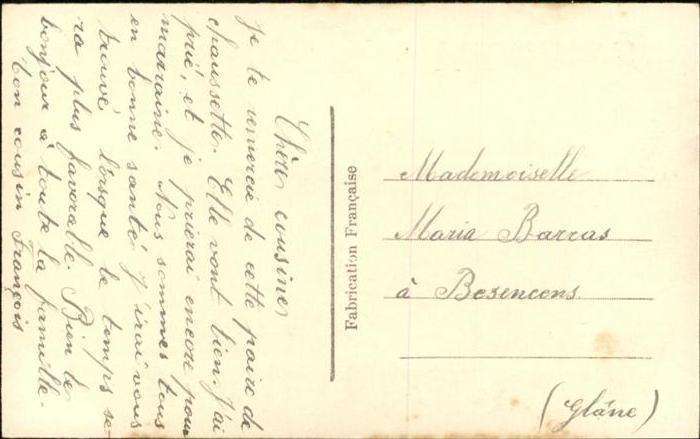 Chère cousine,
Je te remercie de cette paire de
chaussette. Elle vont bien. J'ai
prié, et je prierai encore pour
marraine. Nous sommes tous
en bonne santé, j'irai vous
trouvé lorsque le temps se-
ra plus favorable. Bien le
bonjour à toute la famille.
Ton cousin François
Fabrication Française
Mademoiselle
Maria Barras
à Besencens.
(Glâne)